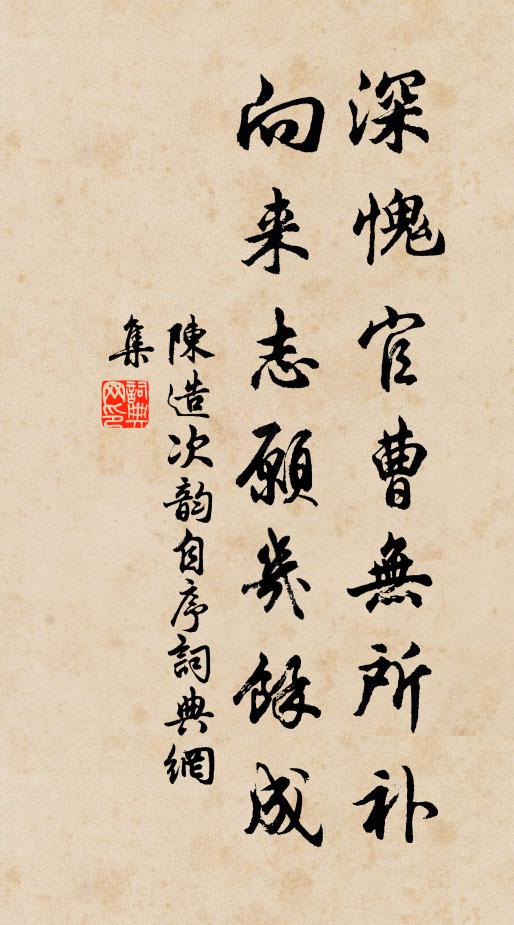 深愧官曹無所补
向来志願幾餘成
陳造次韵自序詞典網
集
詞典網印